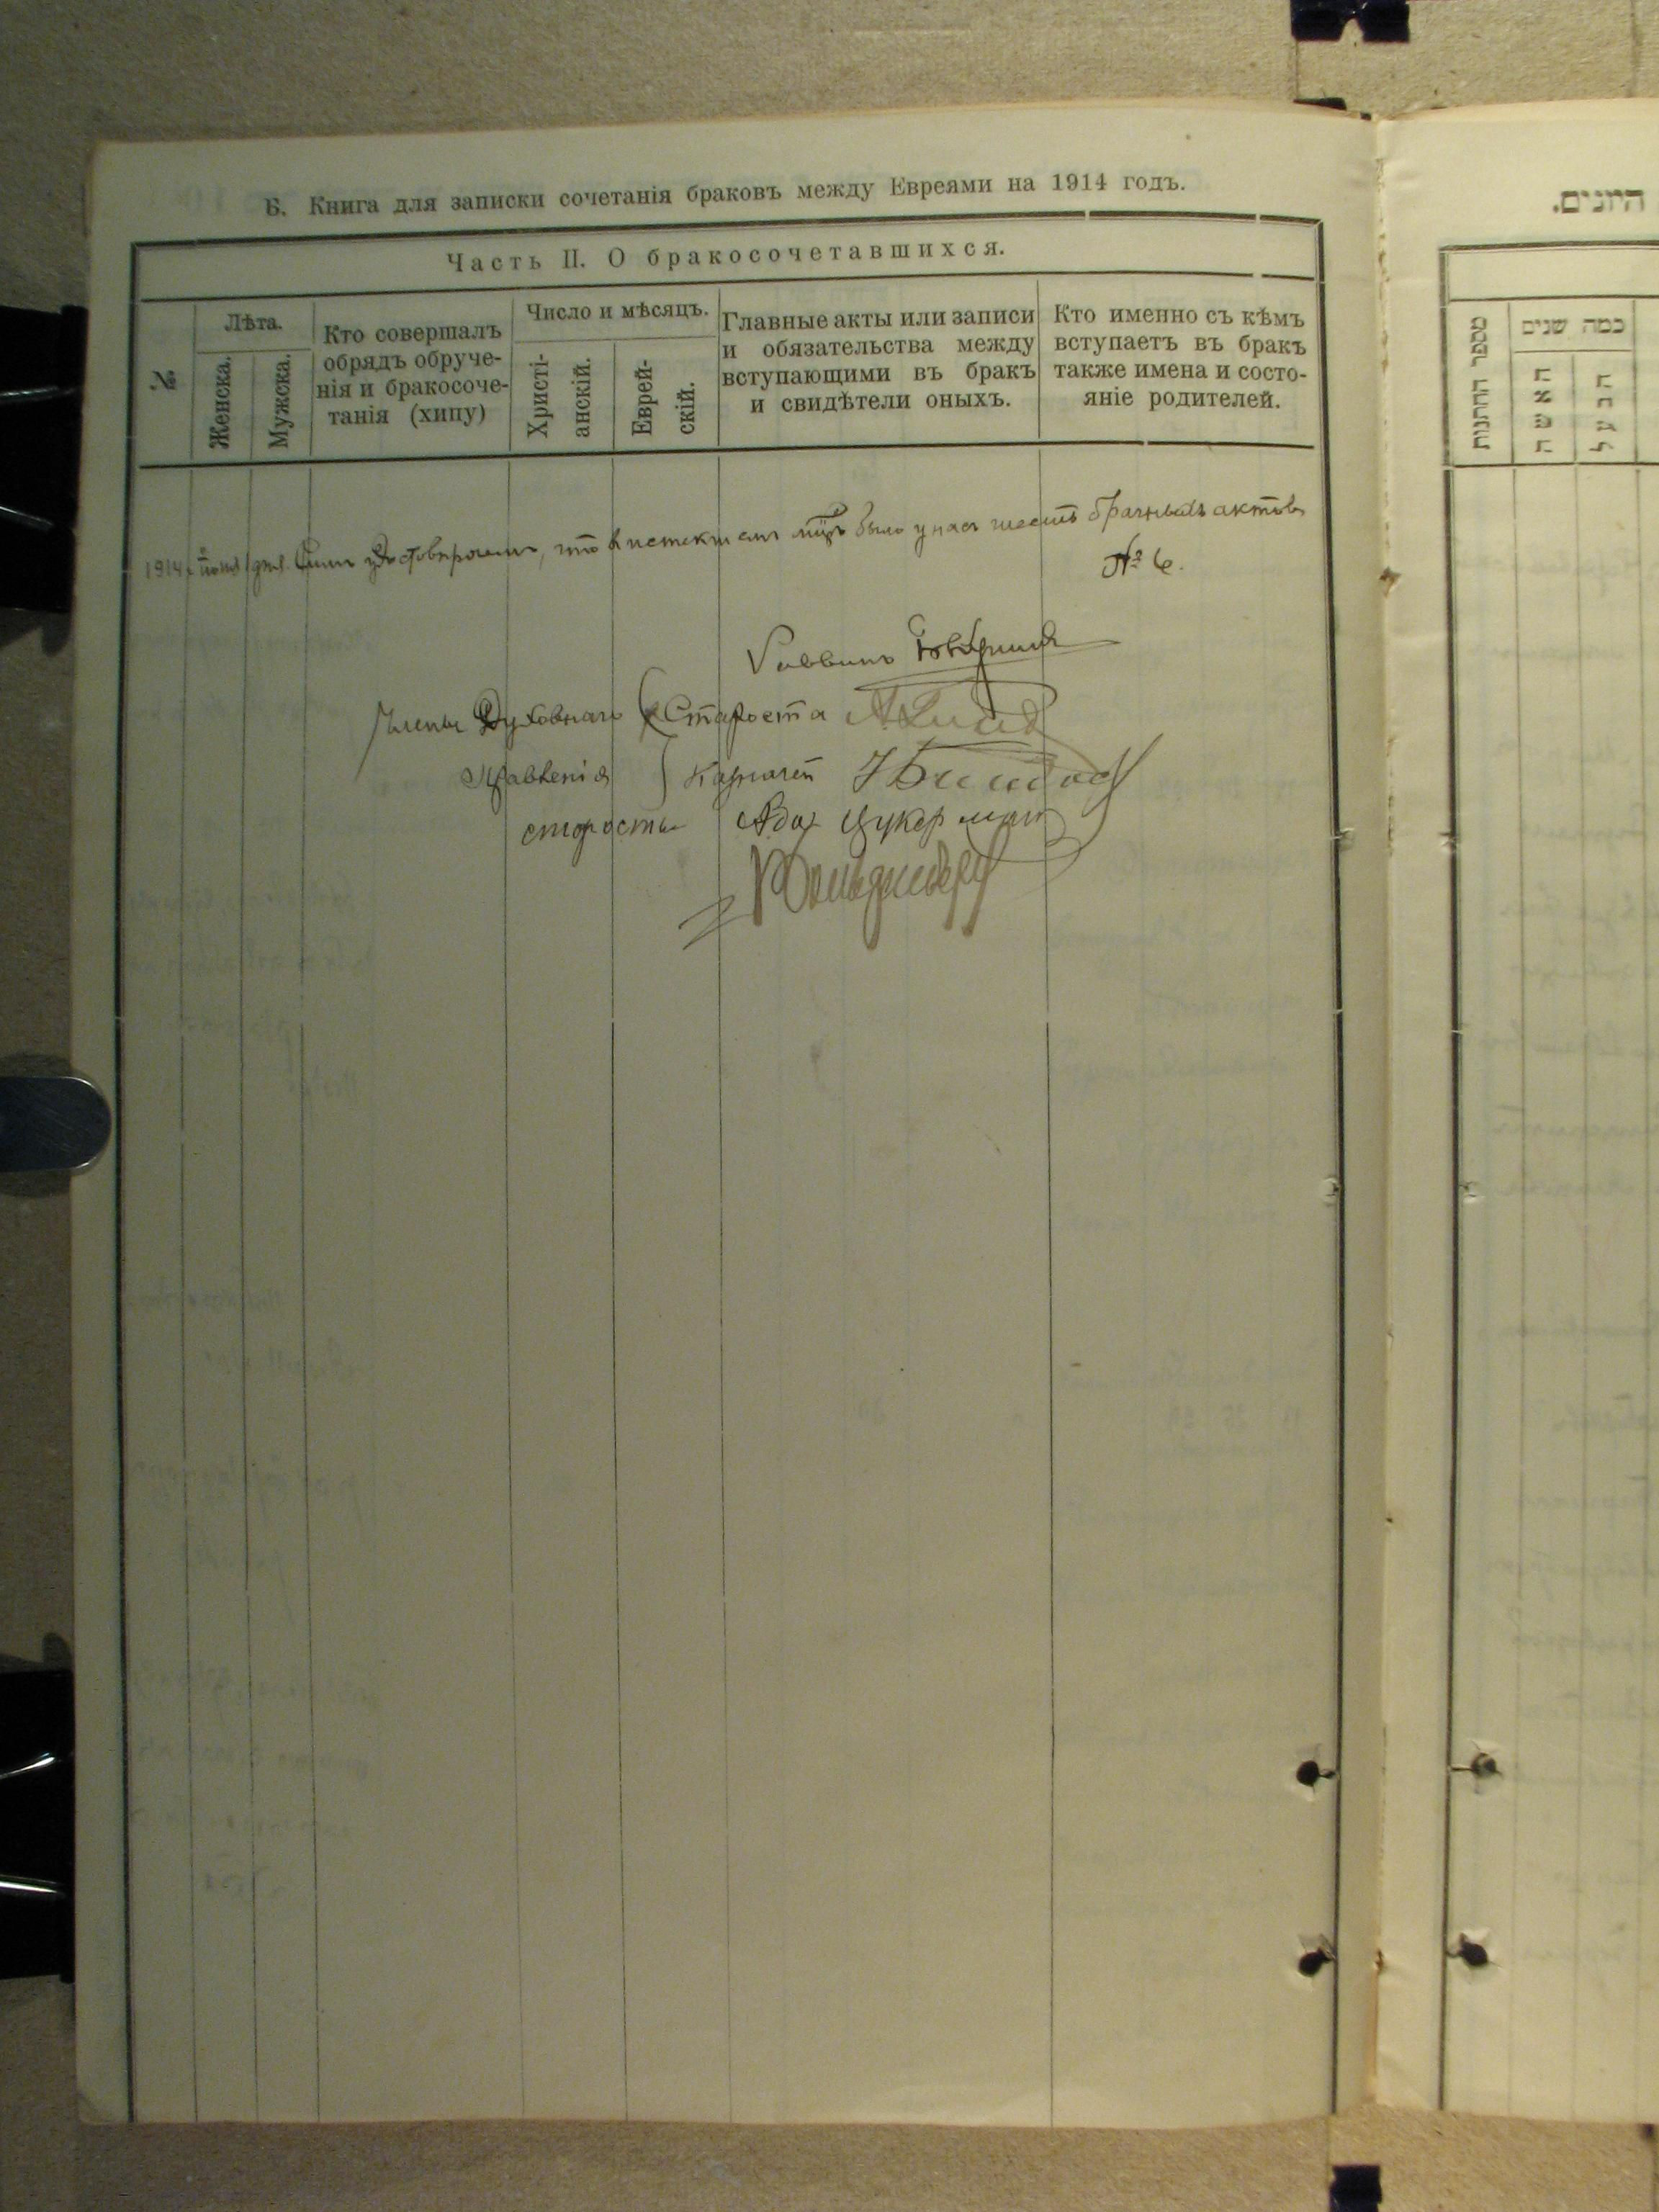 Б. Книга для записки сочетанія браковъ между Евреями на 1914 годъ.
Часть II. О бракосочетавшихся.
№
Лѣта.
Женска.
Мужска.
Кто совершалъ
обрядъ обруче-
нія и бракосоче-
танія (хипу)
Число и мѣсяцъ.
Христі-
анскій.
Еврей-
скій.
Главные акты или записи
и обязательства между
вступающими въ бракъ
и свидѣтели оныхъ.
Кто именно съ кѣмъ
вступаетъ въ бракъ
также имена и состо-
яніе родителей.
1914 г. дня. Симъ удостовѣряемъ, что в истекшемъ было у насъ шесть брачныхъ актовъ
№ 6.
Раввинъ
Члены Духовнаго Староста
Правленія Казначей
старосты Цукерман
היונים.
מספר החתונות
כמה שנים
האשה
הבעל